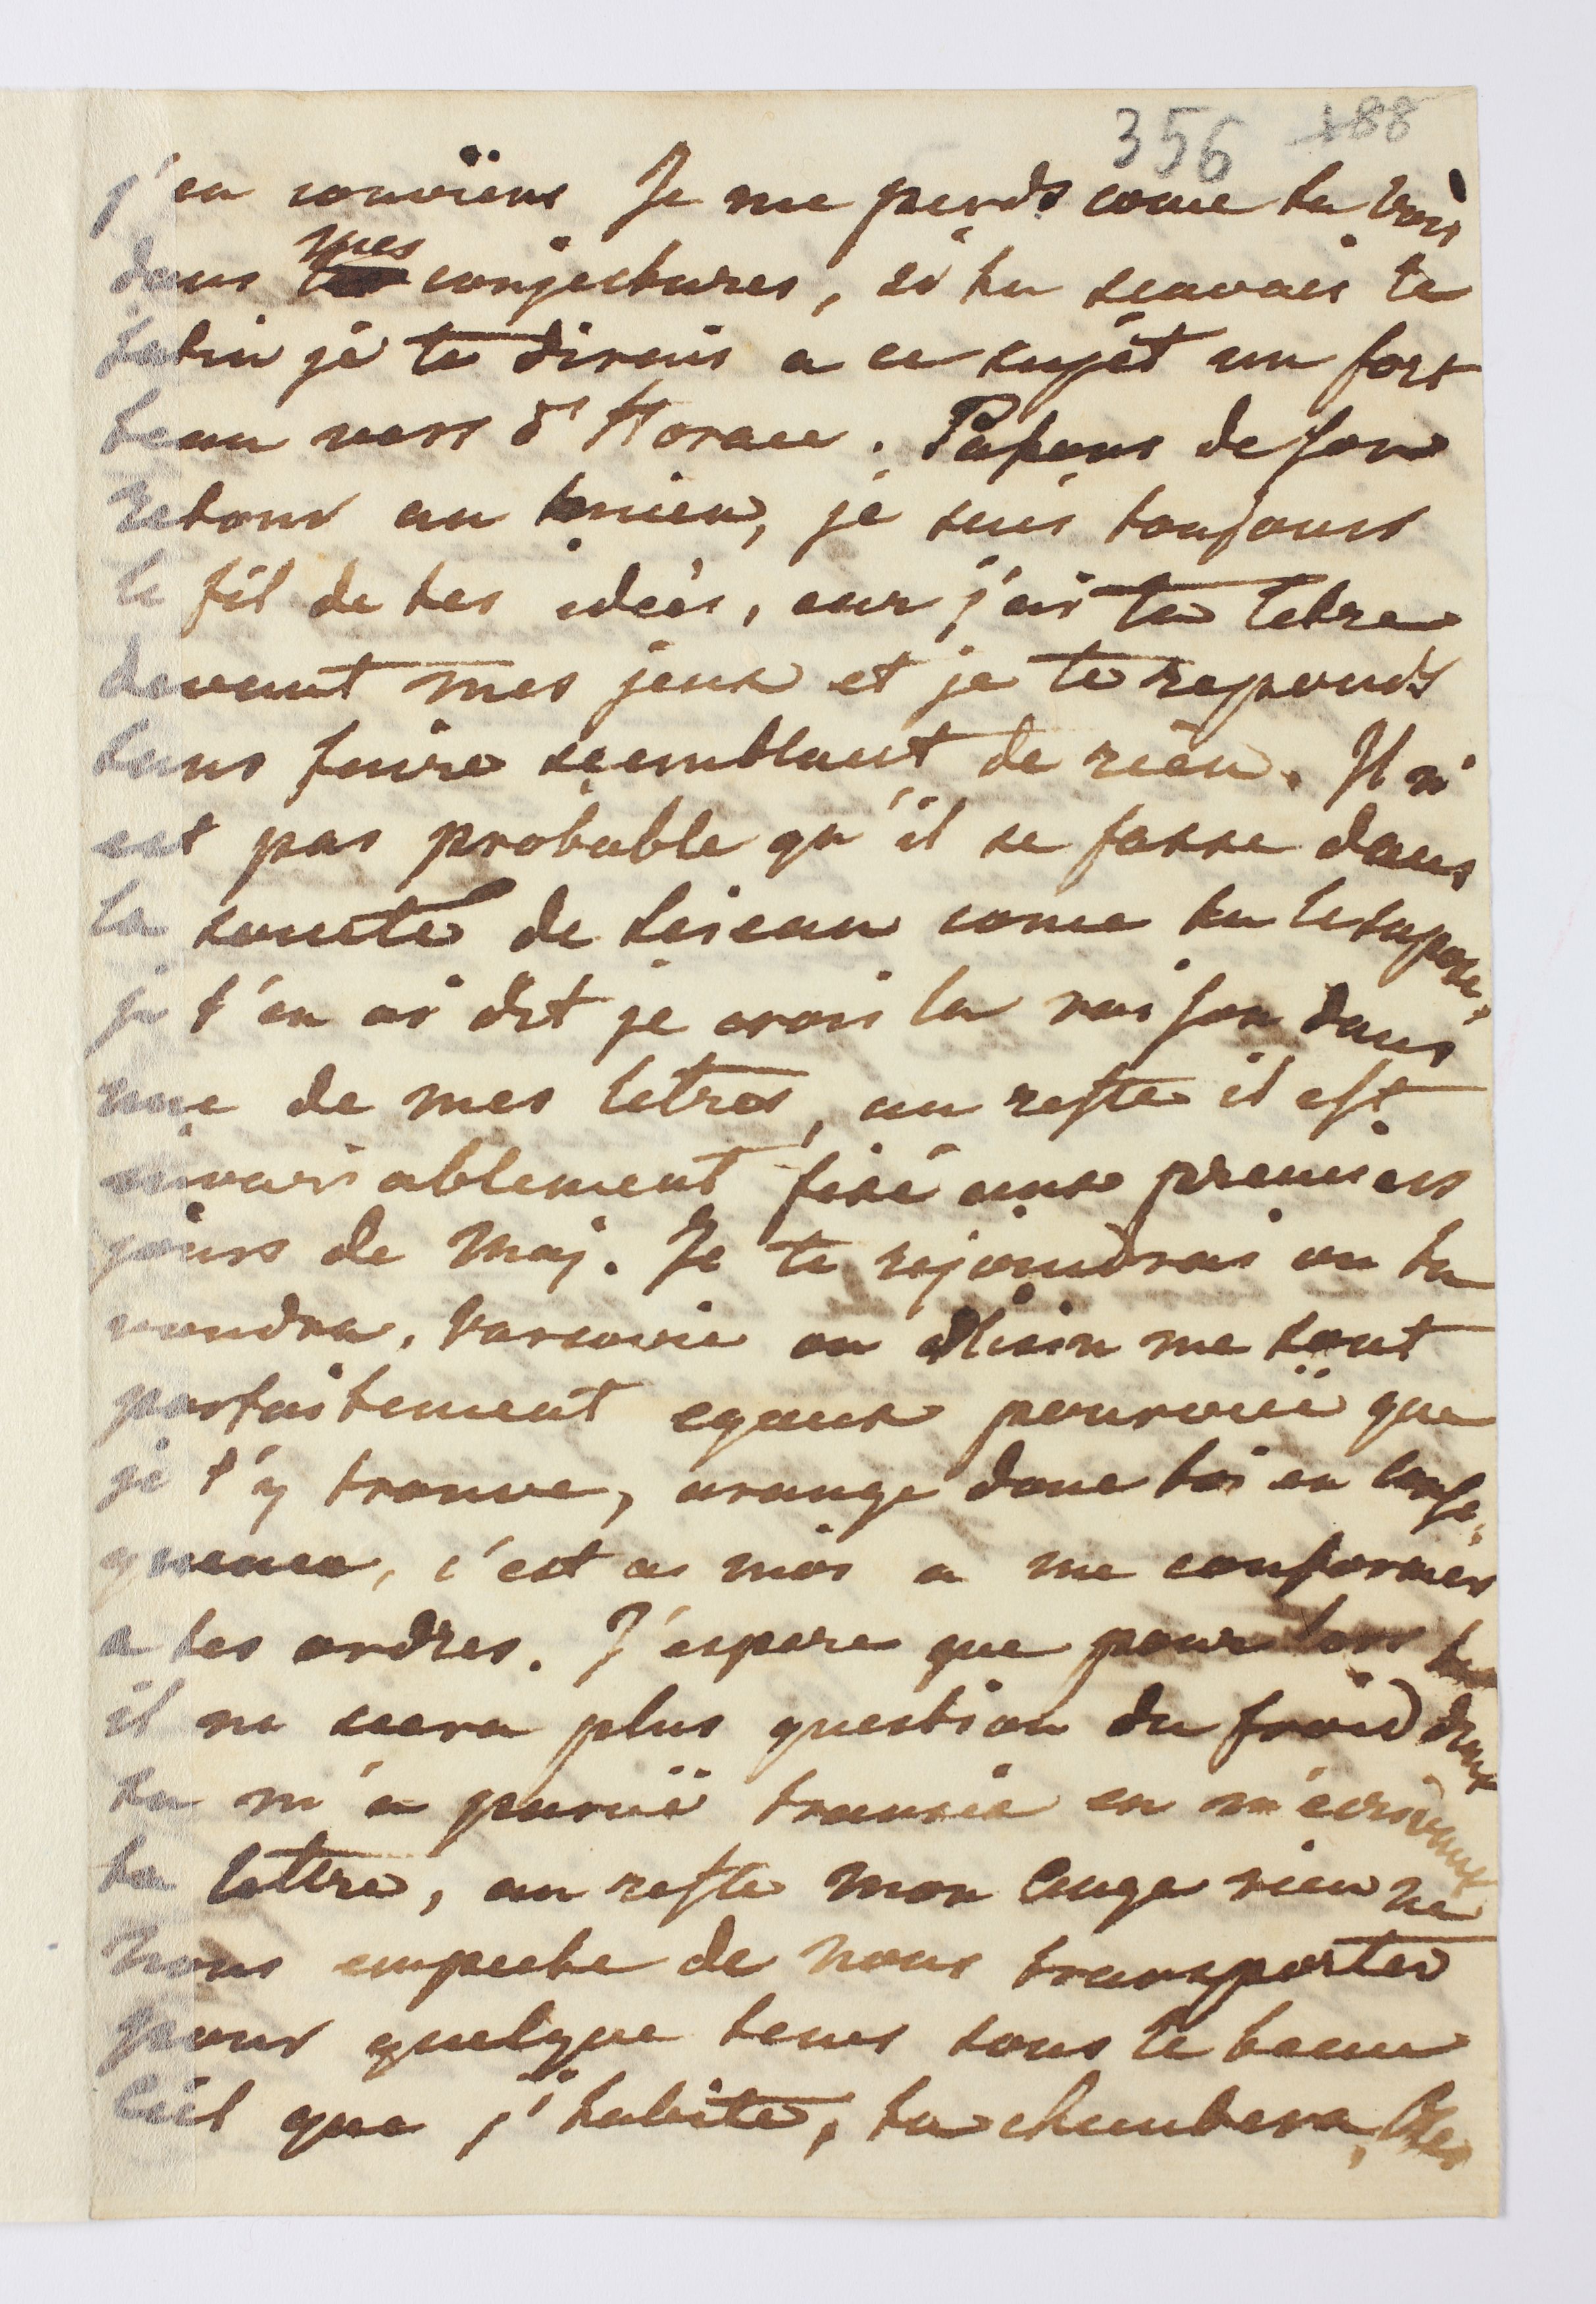 356 188
j'en conviens Je me perds come tu vois
dans mes conjectures, si tu scavais le
latin je te dirais a ce sujèt un fort
beau vers d'Horace. Pasons de son
retour au mien, je suis toujours
le fil de tes idées, car j'ai ta letre
devant mes jeux et je te reponds
sans faire seemblant de rien. Il n'
est pas probable qu'il se fasse dans
la de come tu le supose,
je t'en ai dit je crois la raison dans
une de mes letres, au reste il est
invariablement fixé aux premiers
jours de Maj. Je te rejoindrai ou tu
voudra, Varsovie ou me sont
parfaitement egaux pourvuë que
je t'y trouve, arange donc toi en conse,
quence, c'est a moi a me conformer
a tes ordres. J'espere que pour lors
il ne seera plus question du froid dont
tu m'a paruë transie en m'ecrivant
ta lettre, au reste mon Ange rien ne
nous empeche de nous transporter
pour quelque tems sous le beau
Ciel que j'habite, tu chantera,